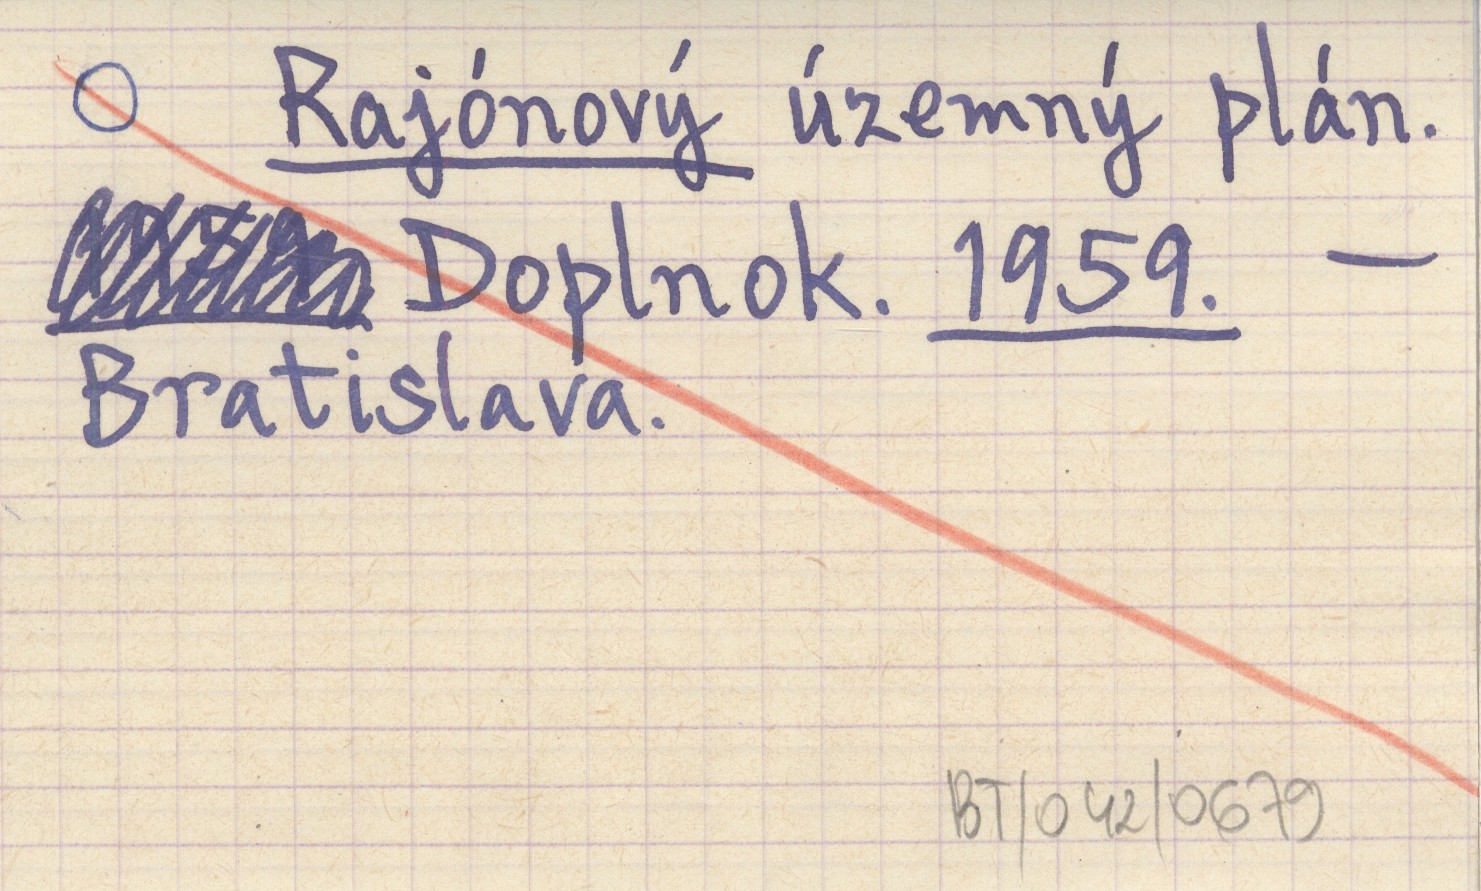 Rajónový územný plán.
Doplnok. 1959. —
Bratislava.
BT/042/0679